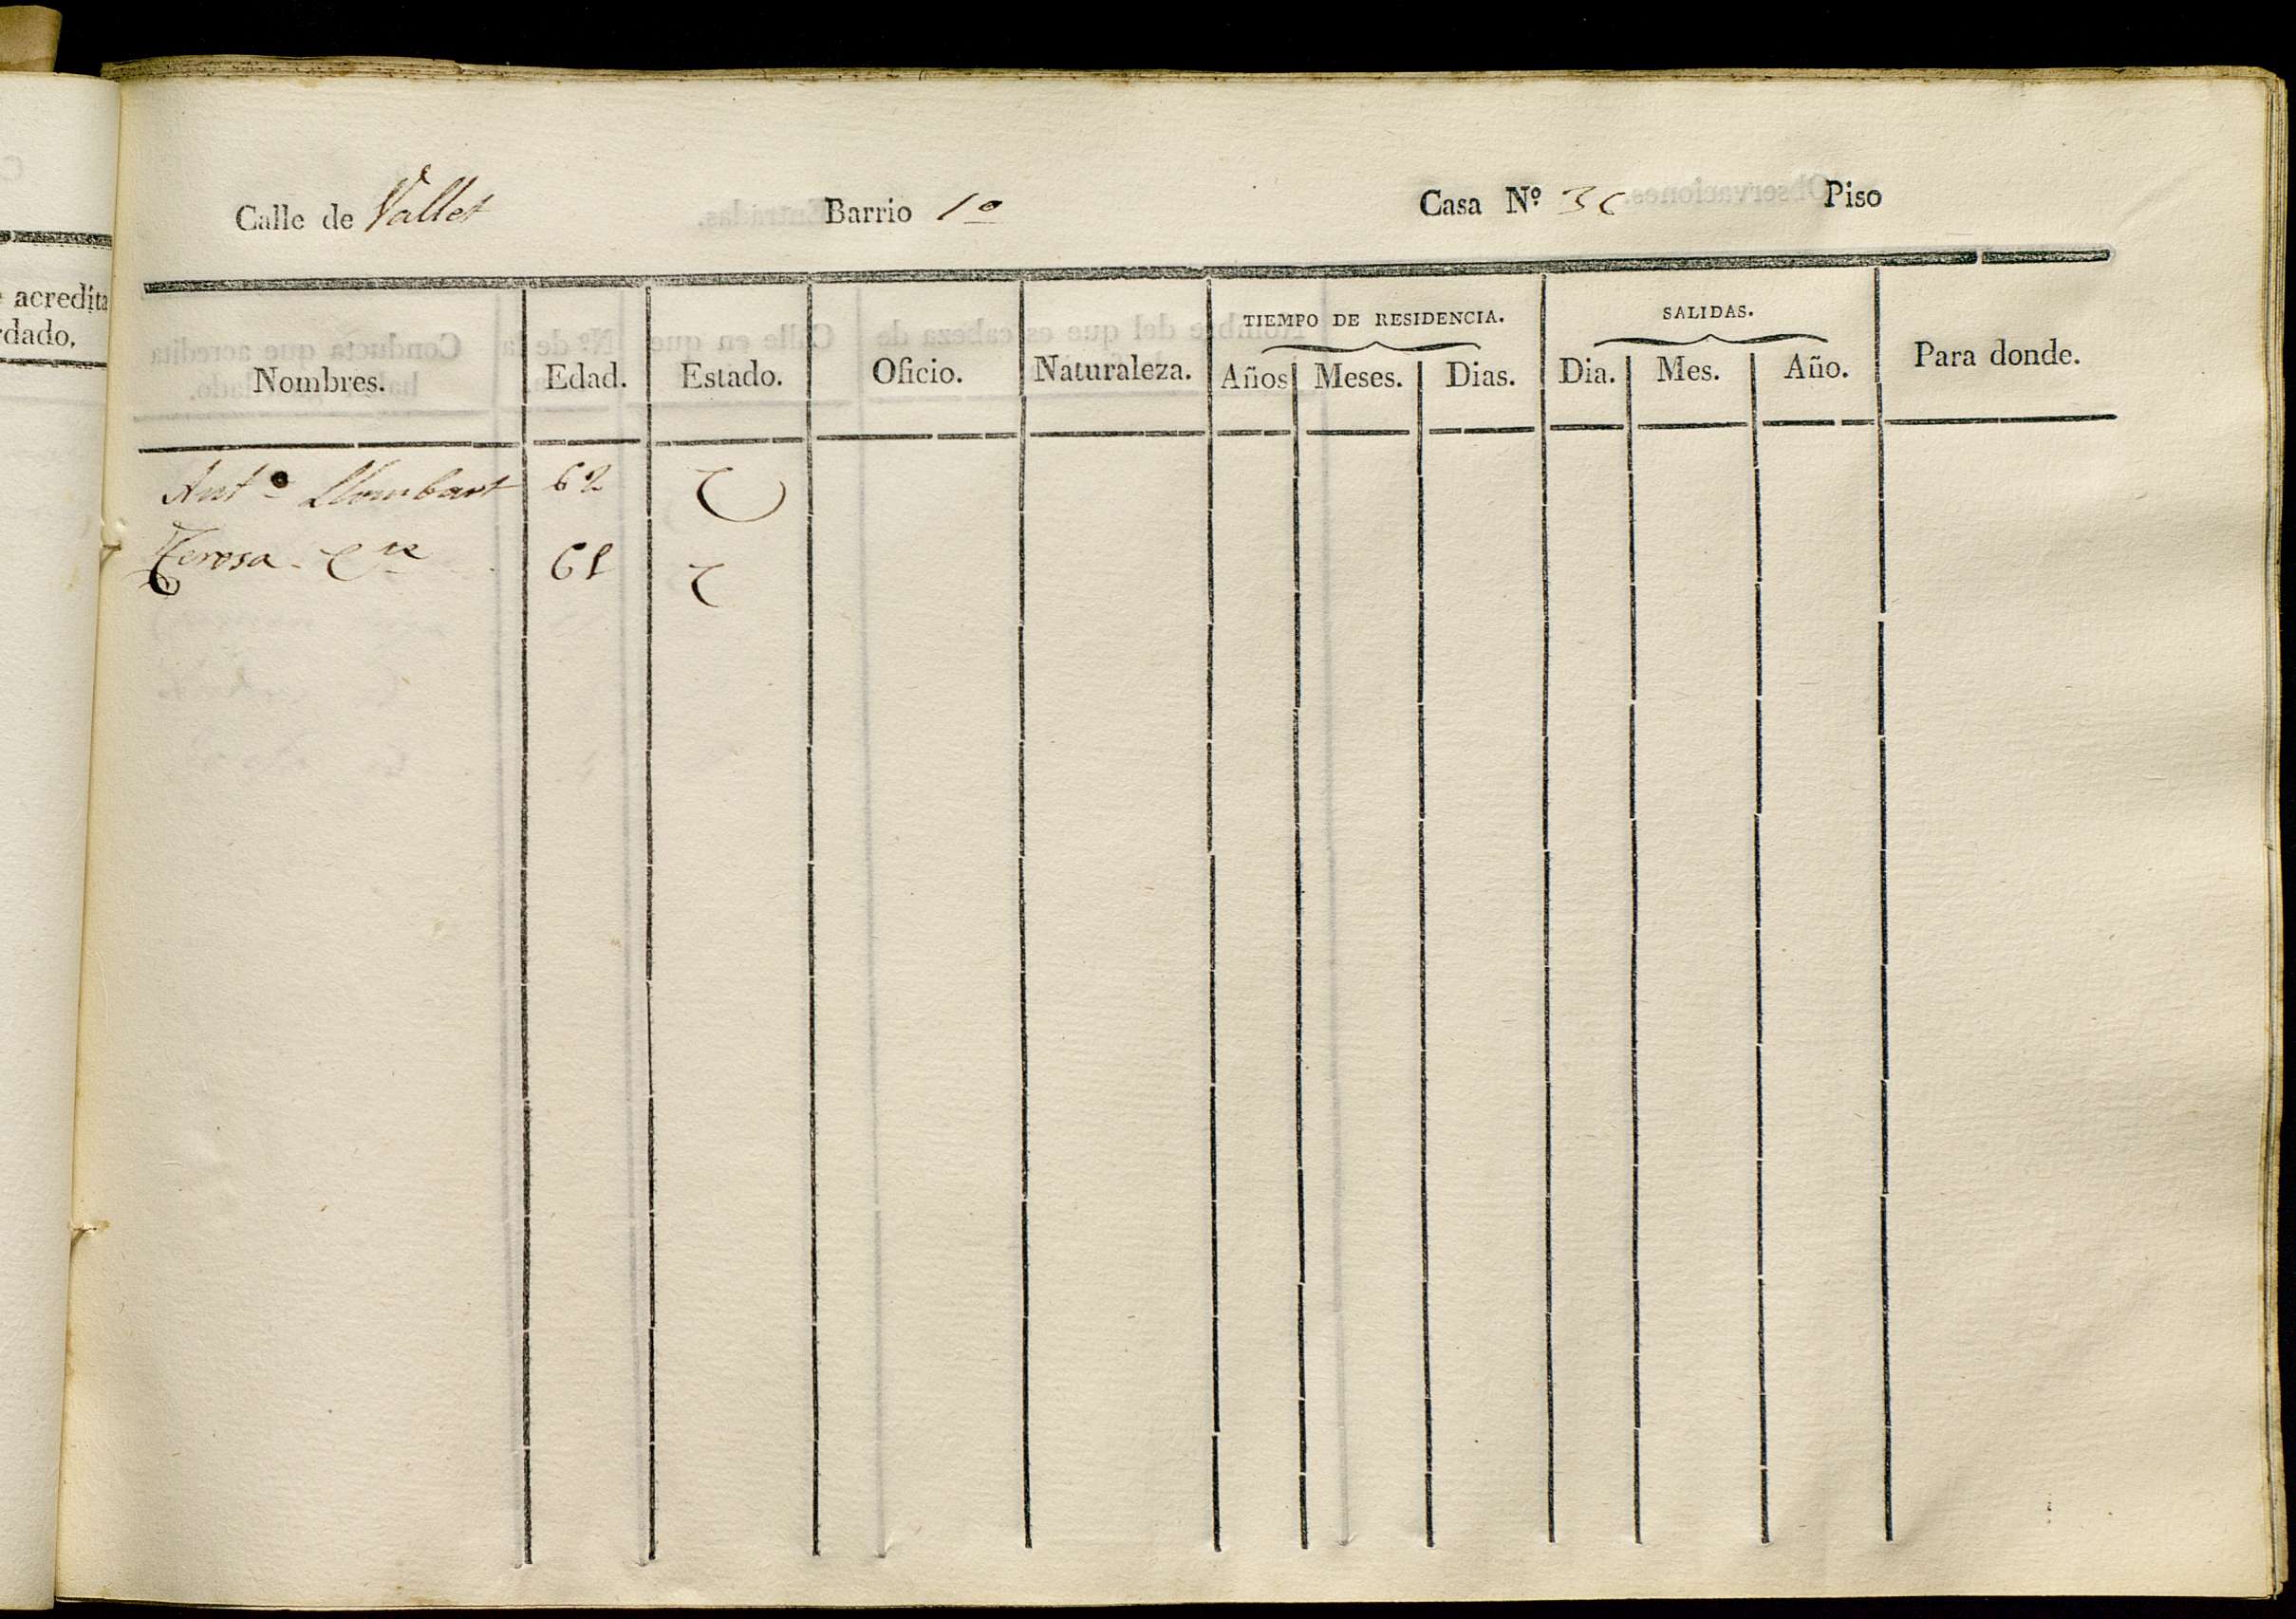 Calle de Vallet Barrio 1º Casa Nº 36 Piso
TIEMPO DE RESIDENCIA. SALIDAS.
Nombres. Edad. Estado. Oficio. Naturaleza. Años Meses. Dias. Dia. Mes. Año. Para donde.
Antº Llombart 62 C
Teresa 61 C
acredita
dado,